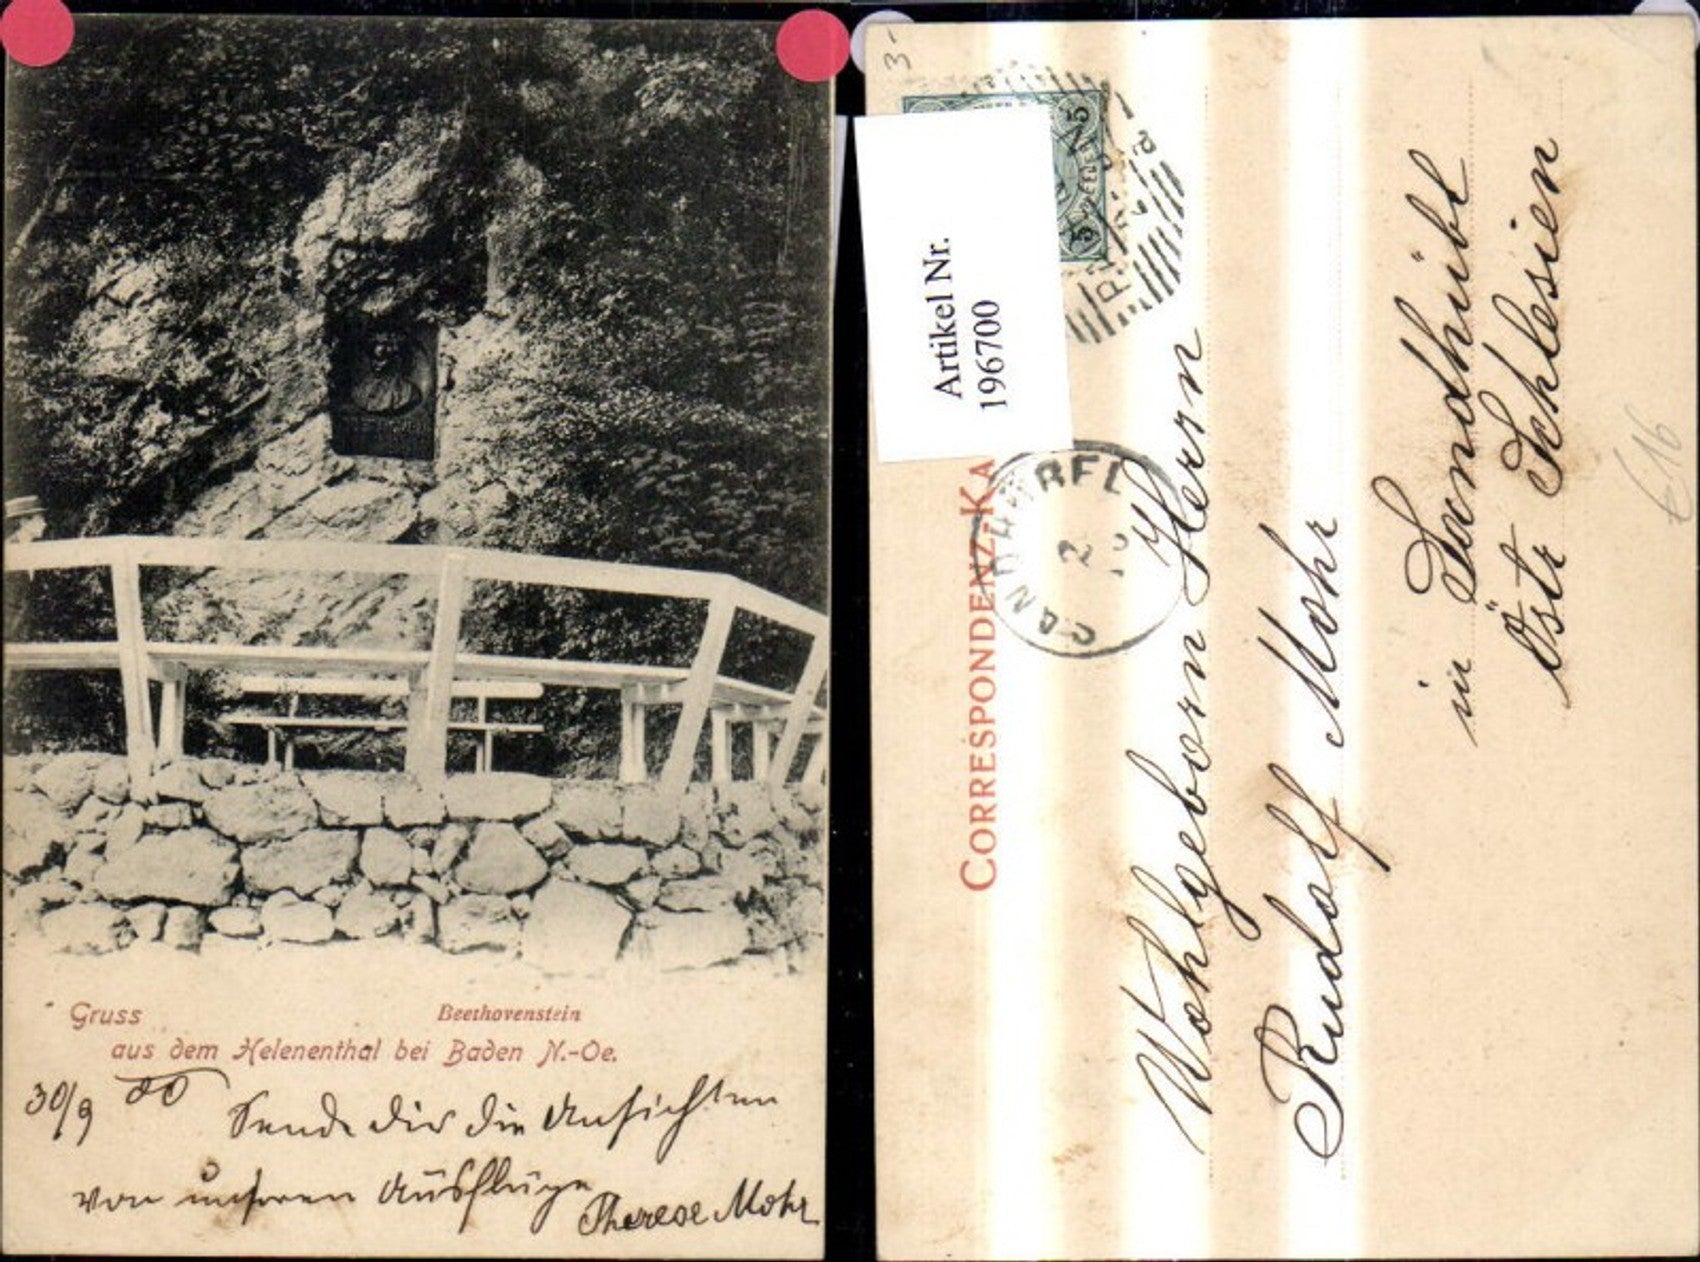 Gruss
Beethovenstein
aus dem Helenenthal bei Baden N.-Oe.
30/9 00
Sende dir die Ansichten
von unseren Ausflüge
Therese Mohr
3-
5 5
Artikel Nr.
196700
CORRESPONDENZ-KA
Wohlgeborn Herrn
Rudolf Mohr
in Sandhübl
Östr Schlesien
€16